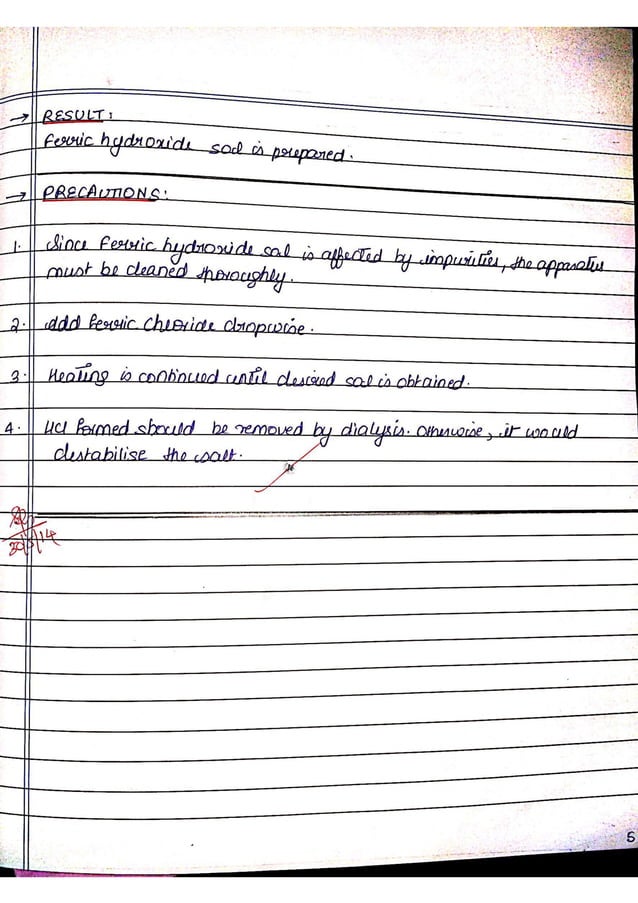 → RESULT:
Ferric hydroxide sol is prepared.
→ PRECAUTIONS:
1. Since Ferric hydroxide sol is affected by impurities, the apparatus
must be cleaned thoroughly.
2. Add ferric chloride dropwise.
3. Heating is continued until desired sol is obtained.
4. HCl formed should be removed by dialysis. Otherwise, it would
destabilise the salt.
5